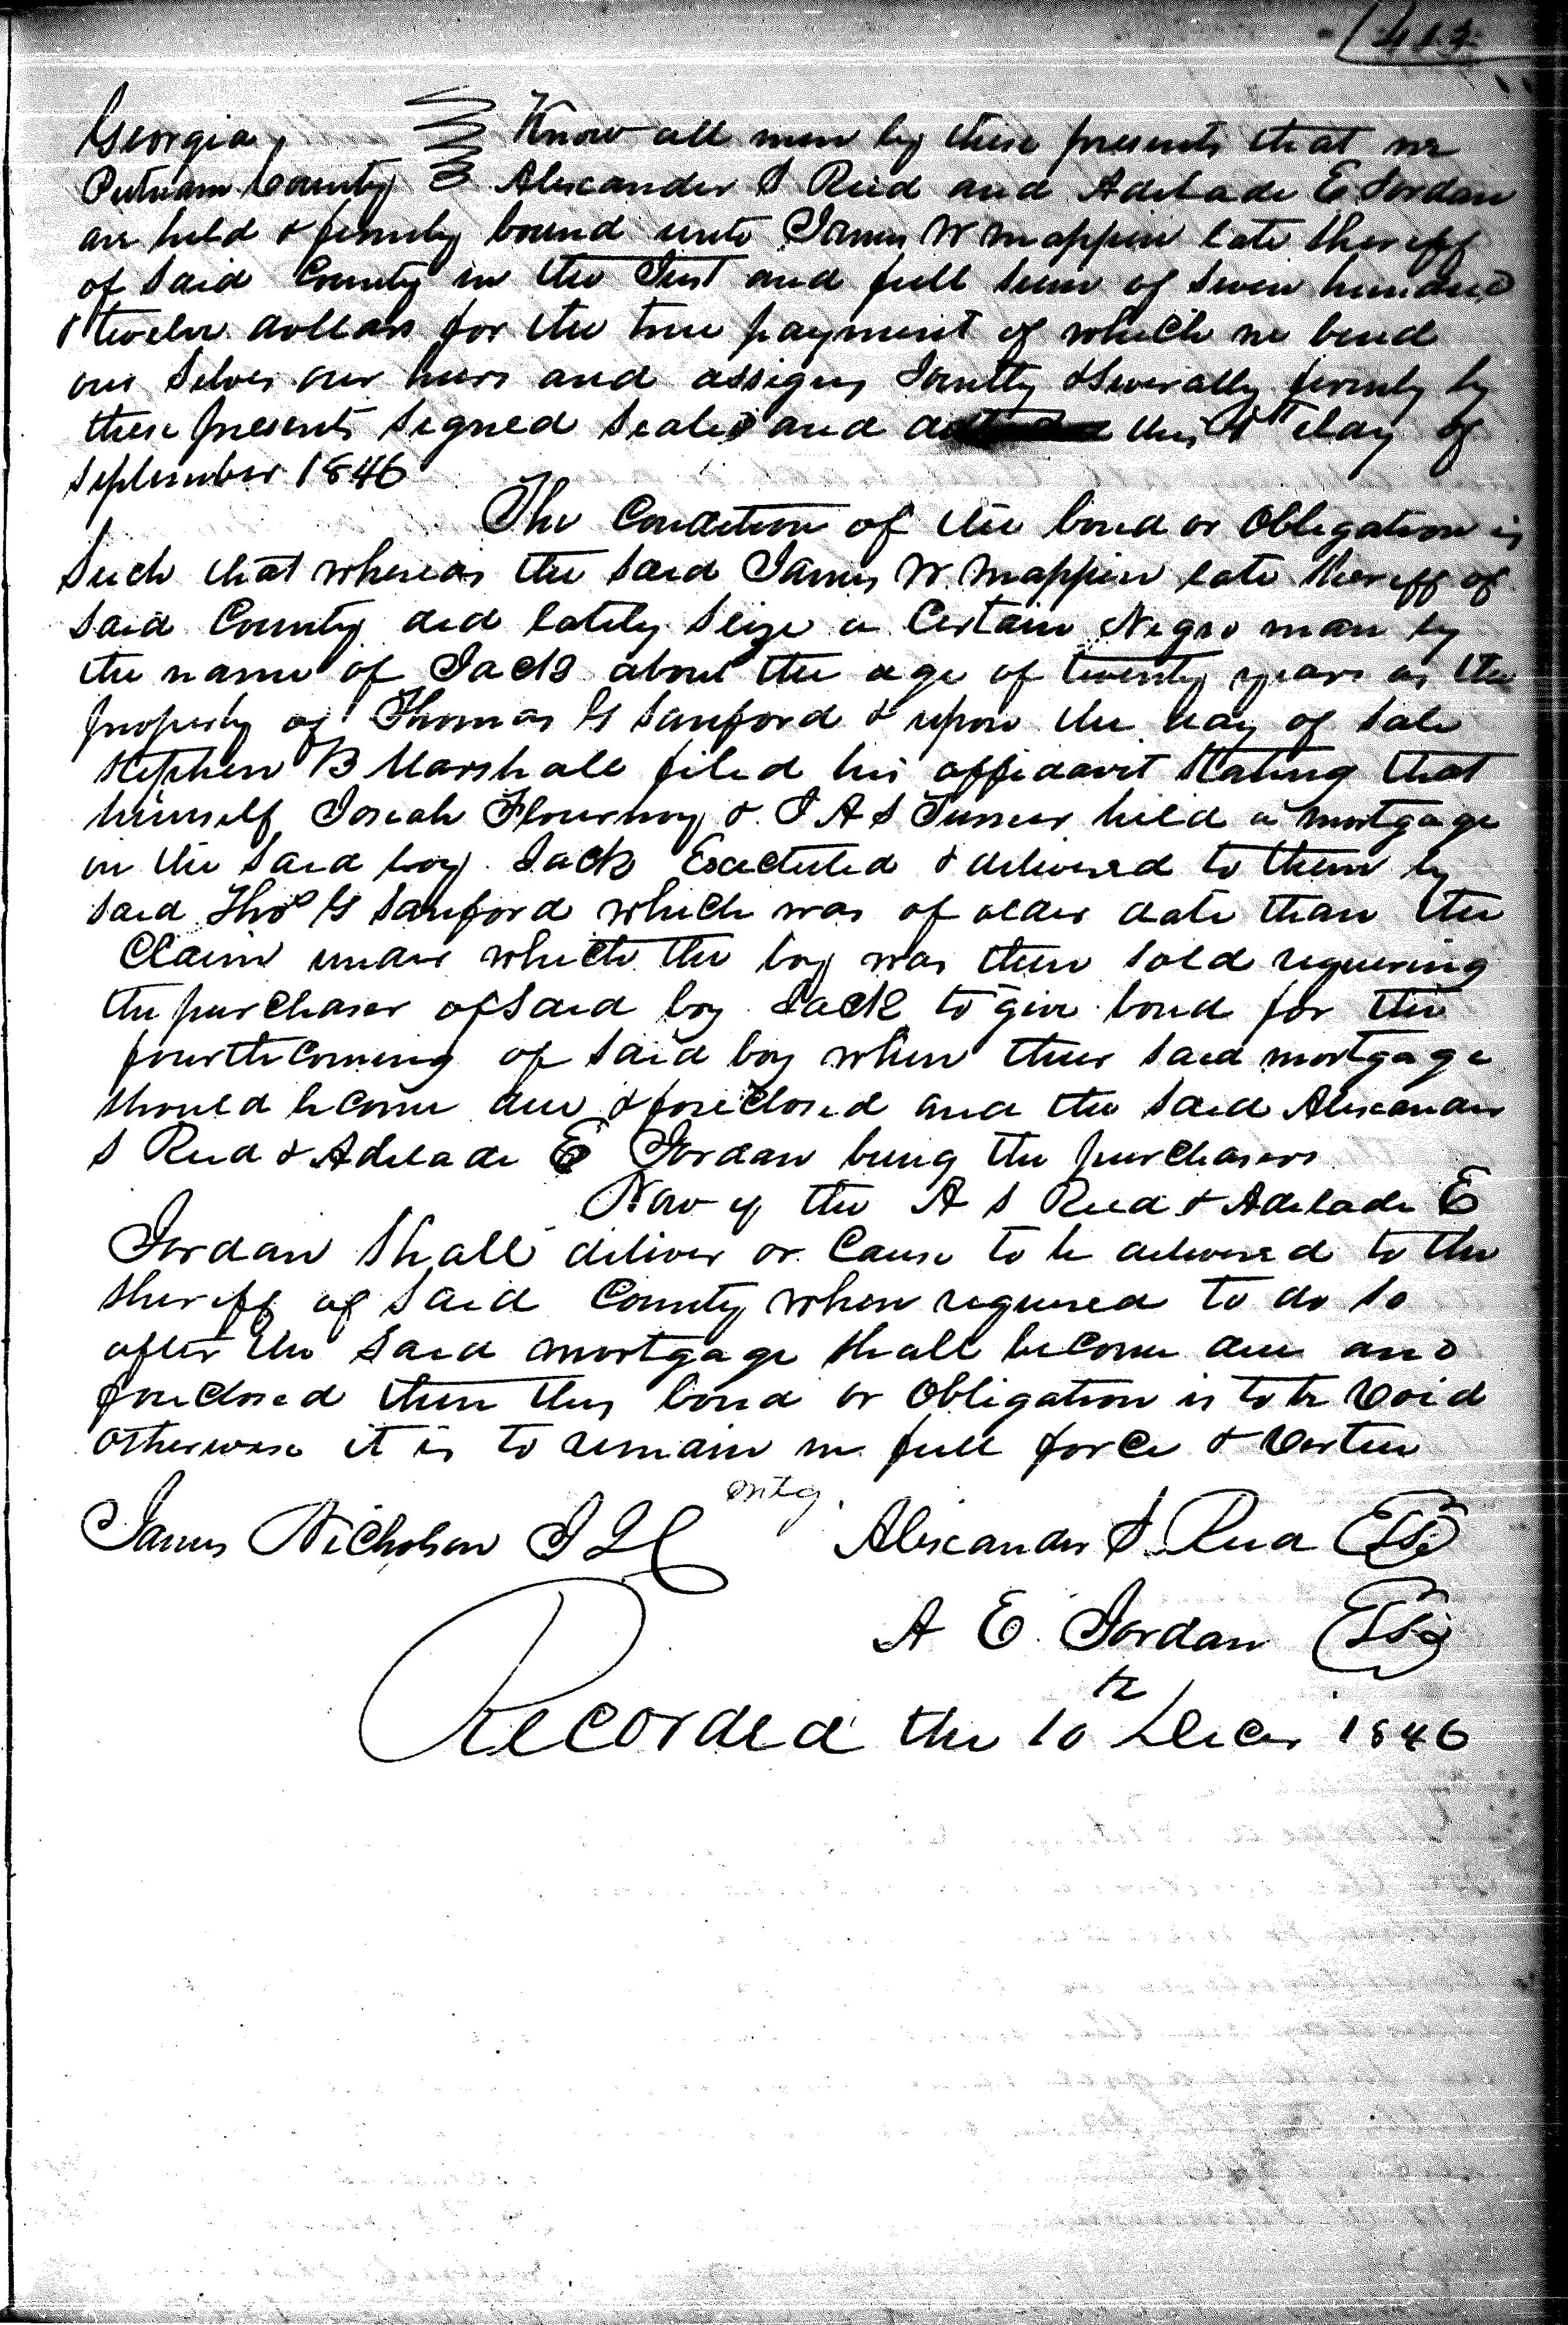 Georgia, Know all men by these presents that we
Putnam County Alexander S Reid and Adelade E Jordan
are held & firmly bound unto James W Mappin late Sheriff
of Said County in the Just and full sum of Seven hundred
& twelve dollars for the true payment of which we bind
our Selves our heirs and assigns Jointly & Severally firmly by
these presents Signed Sealed and this 1st day of
September 1846
The Condition of the bond or Obligation is
Such that whereas the Said James W. Mappin late Sheriff of
Said County did lately Seize a Certain Negro man by
the name of Jack about the age of twenty years as the
property of Thomas G Sanford & upon the day of Sale
Stephen B Marshall filed his affidavit Stating that
himself Josiah Flournoy & J A S Turner held a mortgage
on the Said boy Jack Executed & delivered to them by
Said Thos G Sanford which was of older date than the
Claim under which the boy was then Sold requiring
the purchaser of Said boy Jack to give bond for the
fourthcoming of Said boy when their Said mortgage
Should become due & foreclosed and the Said Alexander
S Reid & Adelade E Jordan being the purchasers
Now if the A S Reid & Adelade E
Jordan Shall deliver or Cause to be delivered to the
Sheriff of Said County when required to do So
after the Said mortgage Shall become due and
foreclosed then this bond or Obligation is to be Void
otherwise it is to remain in full force & Vertue
mtg.
James Nicholson J I C Alexander S. Reid LS
A E. Jordan LS
Recorded the 10th Decr 1846